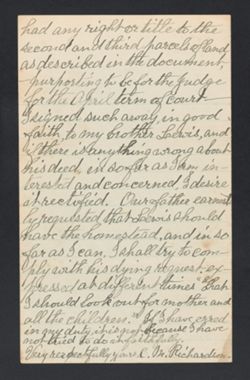 had any right or title to the
second and third parcels of land
as described in the document,
purporting to be for the Judge
for the April term of court
I signed such away, in good
faith, to my brother Lewis, and
if there is anything wrong about
his deed, in so far as I am in-
terested and concerned, I desire
it rectified. Our father earnestly
requested that Lewis should
have the homestead, and in so
far as I can, I shall try to com-
ply with his dying request, ex-
pressed at different times "that
I should look out for mother and
all the children." If I have erred
in my duty, it is not because I have
not tried to do
Very respectfully yours C. M. Richardson.